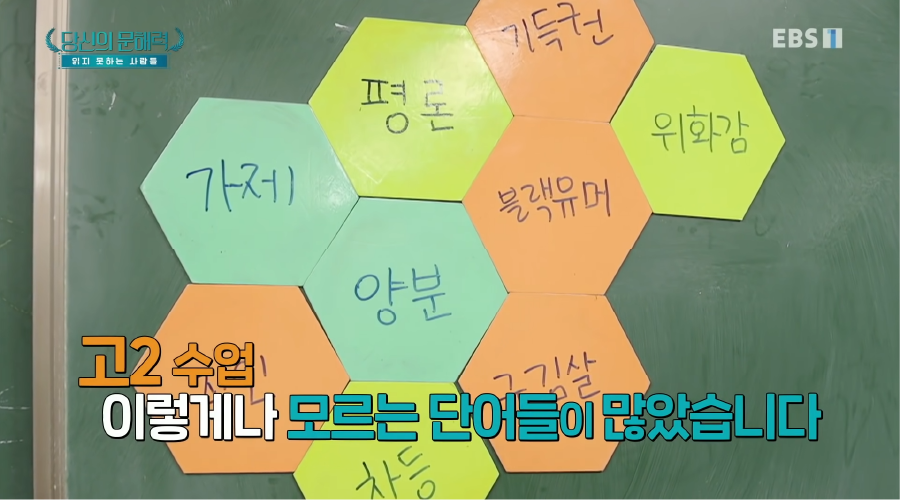 당신의 문해력
읽지 못하는 사람들
EBS 1
기득권
평론
위화감
가제
블랙유머
양분
구김살
차등
고2 수업
이렇게나 모르는 단어들이 많았습니다